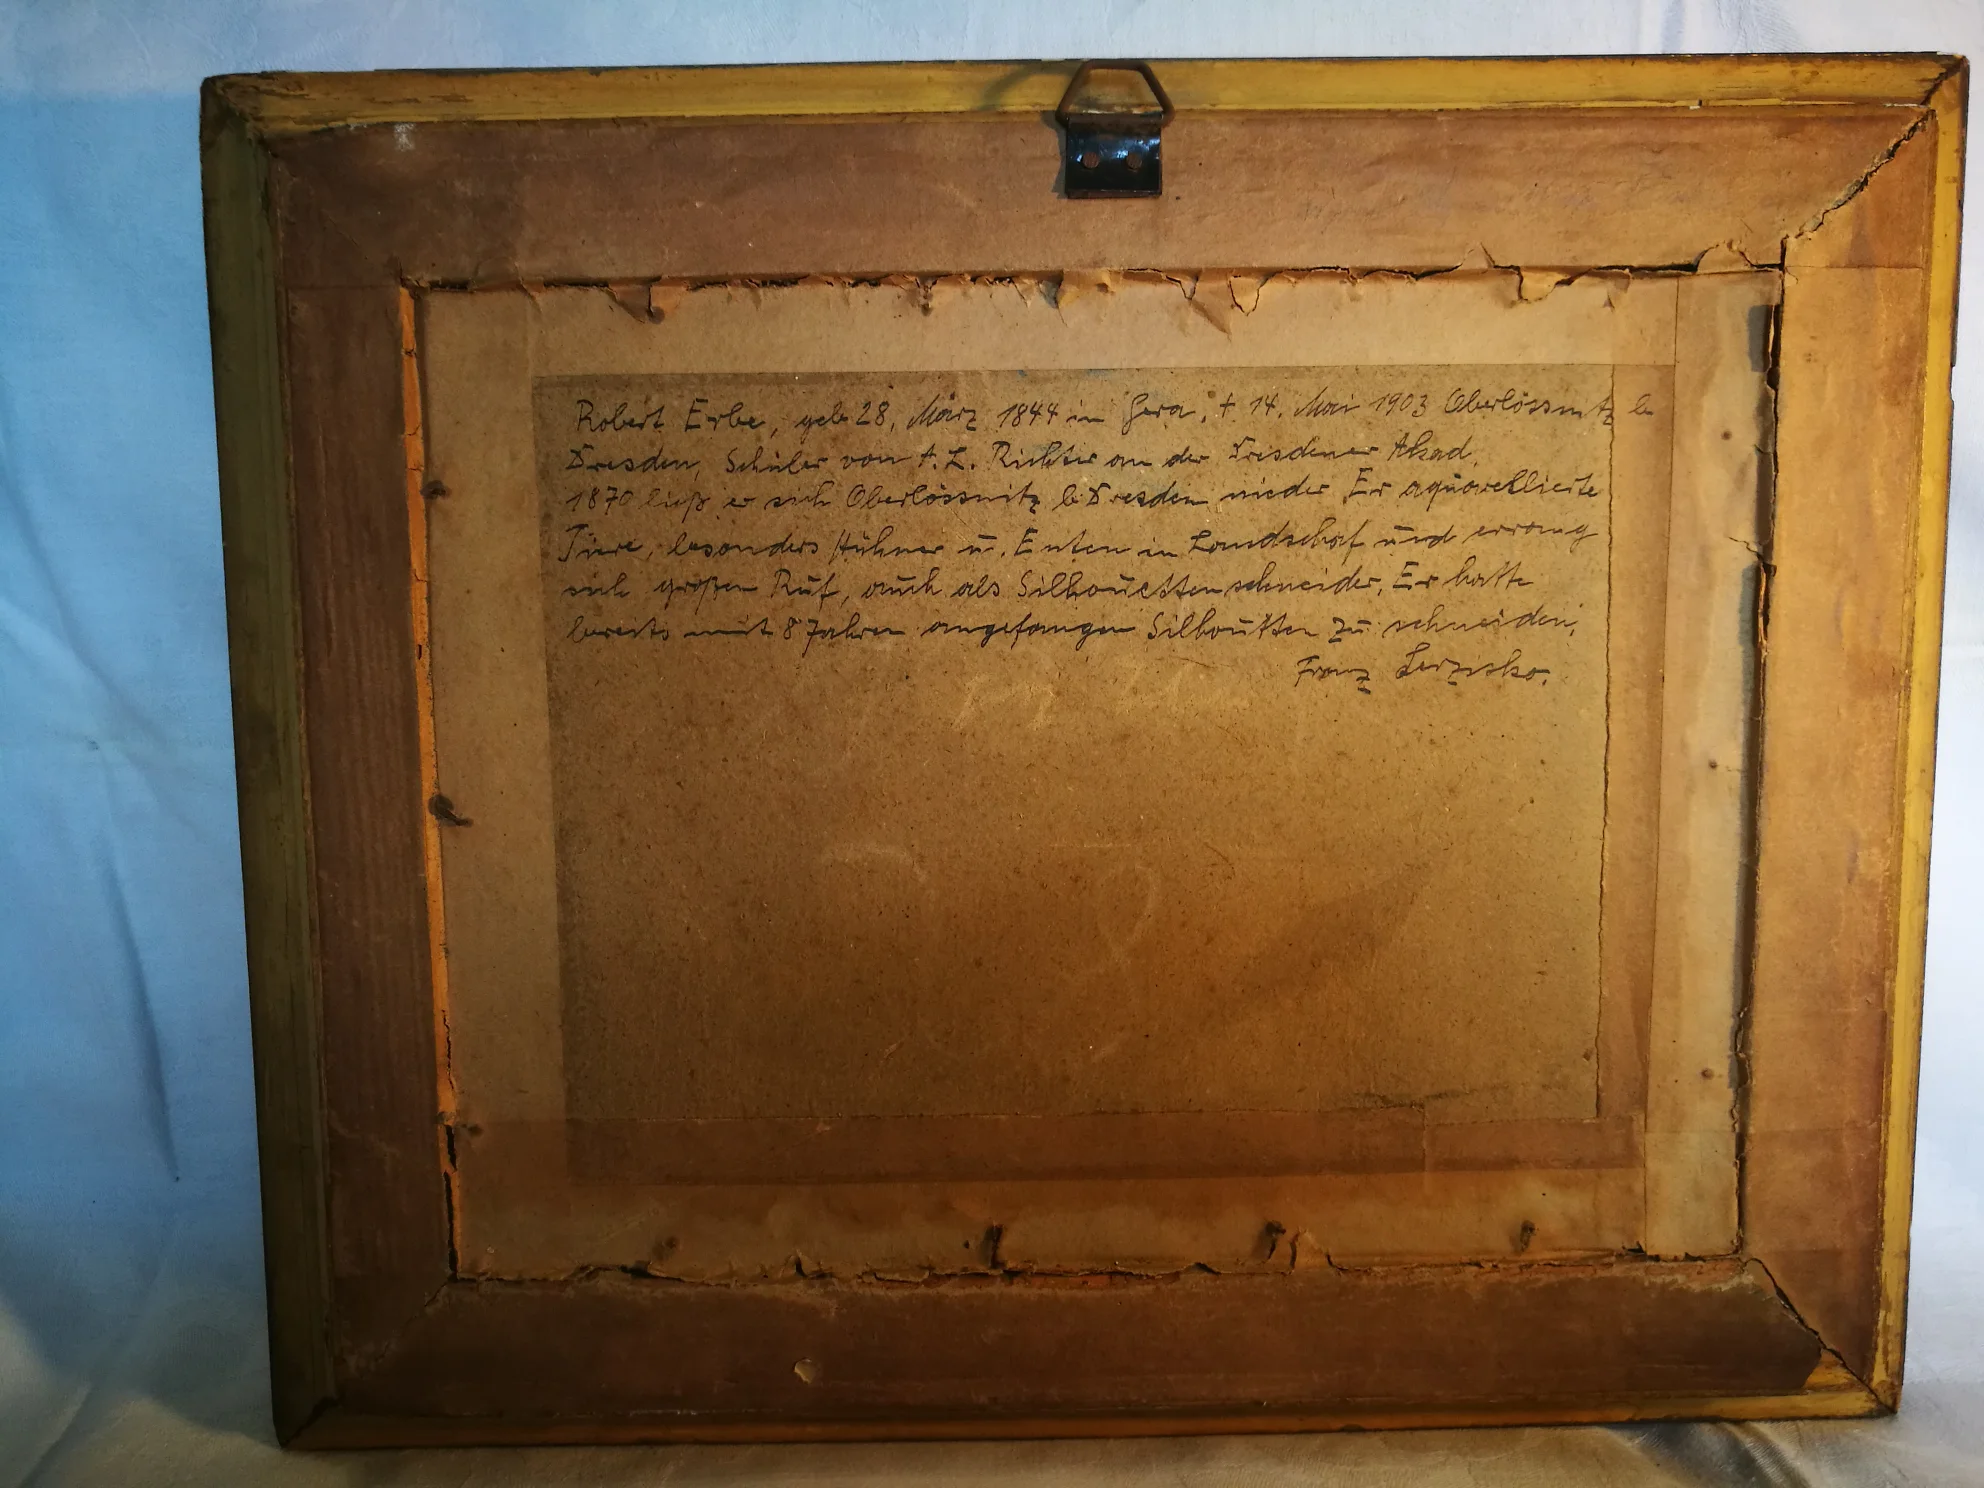 Robert Erbe, geb 28. März 1844 in Gera, † 14. Mai 1903 Oberlössnitz b
Dresden, Schüler von A. L. Richter an der Dresdener Akad.
1870 ließ er sich Oberlössnitz b Dresden nieder Er aquarellierte
Tiere, besonders Hühner u. Enten in Landschaf und errang
sich großen Ruf, auch als Silhouettenschneider. Er hatte
bereits mit 8 Jahren angefangen Silhoutten zu schneiden.
Franz